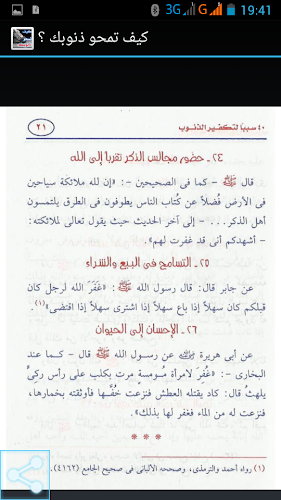 3G G 19:41
كيف تمحو ذنوبك ؟
٤٠ سببا لتكفير الذنوب
٢١
٢٤ـ حضور مجالس الذكر تقربا إلى الله
قال ﷺ – كما فى الصحيحين –: «إن لله ملائكة سياحين
فى الأرض فُضلاً عن كُتاب الناس يطوفون فى الطرق يلتمسون
أهل الذكر... – إلى آخر الحديث حيث يقول تعالى لملائكته:
– أشهدكم أنى قد غفرت لهم».
٢٥ـ التسامح فى البيع والشراء
عن جابر قال: قال رسول الله ﷺ: «غَفَرَ الله لرجل كان
قبلكم كان سهلاً إذا باع سهلاً إذا اشترى سهلاً إذا اقتضى»(١).
٢٦ـ الإحسان إلى الحيوان
عن أبى هريرة رضي الله عنه عن رسول الله ﷺ قال – كما عند
البخارى –: «غُفِرَ لامرأة مُومسةٍ مرت بكلب على رأس ركِىٍّ
يلهثُ قال: كاد يقتله العطش فنزعت خُفَّها فأوثقته بخمارها،
فنزعت له من الماء فغفر لها بذلك».
* * *
(١) رواه أحمد والترمذى، وصححه الألبانى فى صحيح الجامع (٤١٦٢).